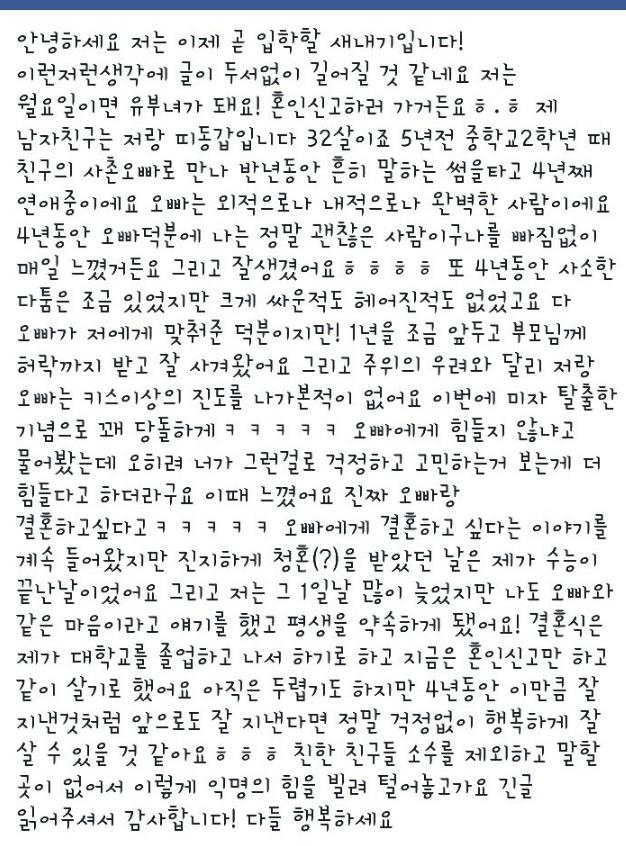 안녕하세요 저는 이제 곧 입학할 새내기입니다!
이런저런생각에 글이 두서없이 길어질 것 같네요 저는
월요일이면 유부녀가 돼요! 혼인신고하러 가거든요ㅎ.ㅎ 제
남자친구는 저랑 띠동갑입니다 32살이죠 5년전 중학교2학년 때
친구의 사촌오빠로 만나 반년동안 흔히 말하는 썸을타고 4년째
연애중이에요 오빠는 외적으로나 내적으로나 완벽한 사람이에요
4년동안 오빠덕분에 나는 정말 괜찮은 사람이구나를 빠짐없이
매일 느꼈거든요 그리고 잘생겼어요ㅎㅎㅎㅎ 또 4년동안 사소한
다툼은 조금 있었지만 크게 싸운적도 헤어진적도 없었고요 다
오빠가 저에게 맞춰준 덕분이지만! 1년을 조금 앞두고 부모님께
허락까지 받고 잘 사겨왔어요 그리고 주위의 우려와 달리 저랑
오빠는 키스이상의 진도를 나가본적이 없어요 이번에 미자 탈출한
기념으로 꽤 당돌하게ㅋㅋㅋㅋㅋ 오빠에게 힘들지 않냐고
물어봤는데 오히려 너가 그런걸로 걱정하고 고민하는거 보는게 더
힘들다고 하더라구요 이때 느꼈어요 진짜 오빠랑
결혼하고싶다고ㅋㅋㅋㅋㅋ 오빠에게 결혼하고 싶다는 이야기를
계속 들어왔지만 진지하게 청혼(?)을 받았던 날은 제가 수능이
끝난날이었어요 그리고 저는 그 1일날 많이 늦었지만 나도 오빠와
같은 마음이라고 얘기를 했고 평생을 약속하게 됐어요! 결혼식은
제가 대학교를 졸업하고 나서 하기로 하고 지금은 혼인신고만 하고
같이 살기로 했어요 아직은 두렵기도 하지만 4년동안 이만큼 잘
지낸것처럼 앞으로도 잘 지낸다면 정말 걱정없이 행복하게 잘
살 수 있을 것 같아요ㅎㅎㅎ 친한 친구들 소수를 제외하고 말할
곳이 없어서 이렇게 익명의 힘을 빌려 털어놓고가요 긴글
읽어주셔서 감사합니다! 다들 행복하세요